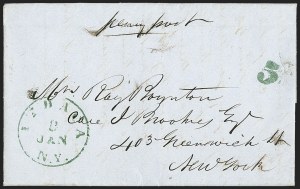 penny post
5
ITHACA
9
JAN
N.Y.
Mrs Ray Boynton
Care J Brookes Esqr
403 Greenwich St
New York